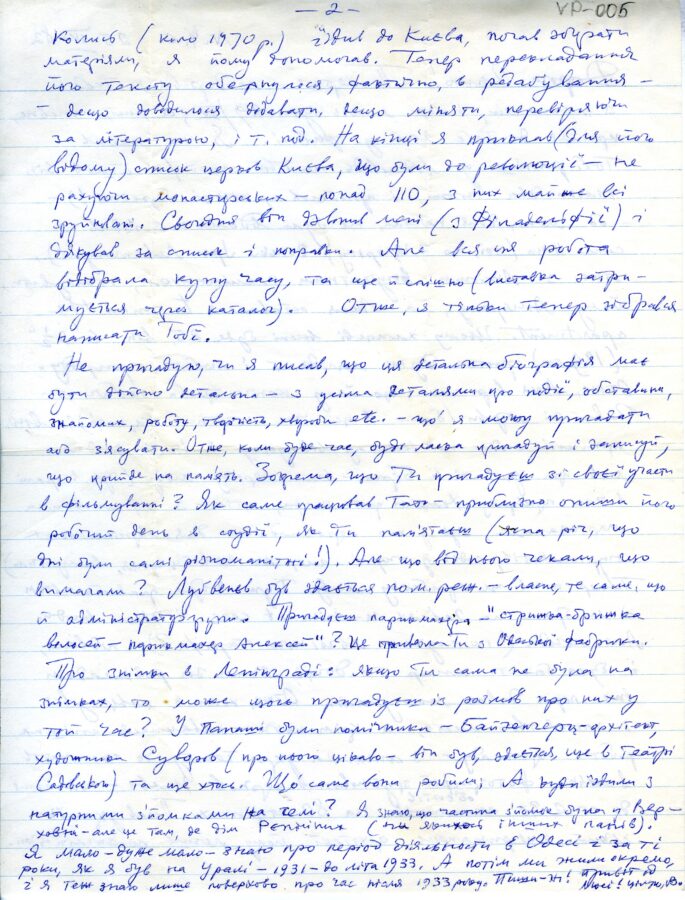 — 2 —
VP-005
Колись (коло 1970 р.) їздив до Києва, почав збирати
матеріяли, я йому допомогав. Тепер перекладання
його тексту обернулося, фактично, в редагування —
— дещо доводилося додавати, дещо міняти, перевіряючи
за літературою, і т. под. На кінці я приклав (для його
водому) список церков Києва, що були до революції — не
рахуючи монастирських — понад 110, з них майже всі
зруйновані. Сьогодня він дзвонив мені (з Філадельфії) і
дякував за список і поправки. Але вся ця робота
відібрала купу часу, та ще й спішно (виставка затри-
мується через каталог). Отже, я тільки тепер зібрався
написати Тобі.
Не пригадую, чи я писав, що ця детальна біографія має
бути дійсно детальна — з усіма деталями про події, обставини,
знайомих, роботу, творчість, хвороби etc. — що я можу пригадати
або з'ясувати. Отже, коли буде час, будь ласка пригадуй і записуй,
що прийде на пам'ять. Зокрема, що Ти пригадуєш зі своєї участи
в фільмуванні? Як саме працював Тато — приблизно опиши його
робочий день в студії, як Ти пам'ятаєш (ясна річ, що
дні були самі різноманітні!). Але що від нього чекали, що
вимагали? був здається пом. реж. — власне, те саме, що
й адміністратор групи. Пригадуєш парикмахера — "стрижка-брижка
волосей — парикмахер Алексей"? Це привезла Ти з Одеської фабрики.
Про знімки в Ленінграді: якщо Ти сама не була на
знімках, то може щось пригадуєш із розмов про них у
той час? У Папаші були помічники — Байзенгерц-архітект,
художники Суворов (про нього цікаво — він був, здається, ще в Театрі
Садовської) та ще хтось. Що саме вони робили; А куди їздили з
натурними зйомками на челі? Я знаю, що частина зйомок була у Вер-
ховні — але це там, де дім Репніних ( інших панів).
Я мало — дуже мало — знаю про період діяльности в Одесі і за ті
роки, як я був на Уралі — 1931 — до літа 1933. А потім ми жили окремо,
і я теж знаю лише поверхово про час після 1933 року. Пиши-ж! Привіт від
Люсі! Цілую, В.